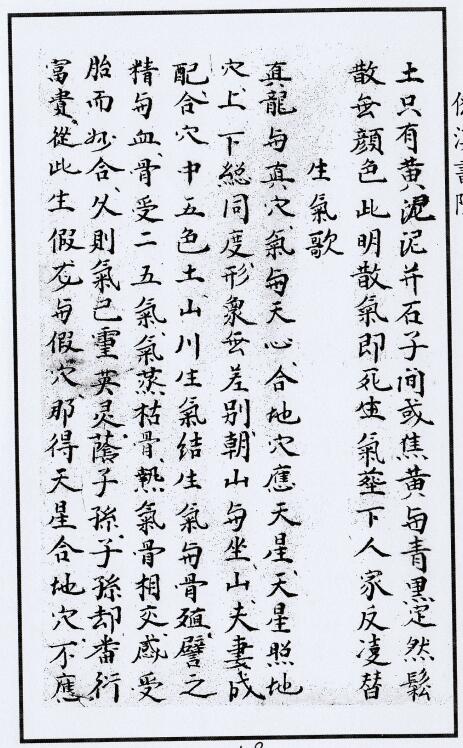 土只有黄泥泥并石子间或焦黄与青黑定然鬆
散無颜色此明散氣即死生氣塟下人家反凌替
生氣歌
真龍与真穴氣与天心合地穴應天星天星照地
穴上下縂同度形象無差别朝山与坐山夫妻成
配合穴中五色土山川生氣结生氣与骨殖譬之
精与血骨受二五氣氣蒸枯骨熱氣骨相交感受
胎而妙合久則氣已靈英灵蔭子孫子孫却畨衍
富貴從此生假龙与假穴那得天星合地穴不應